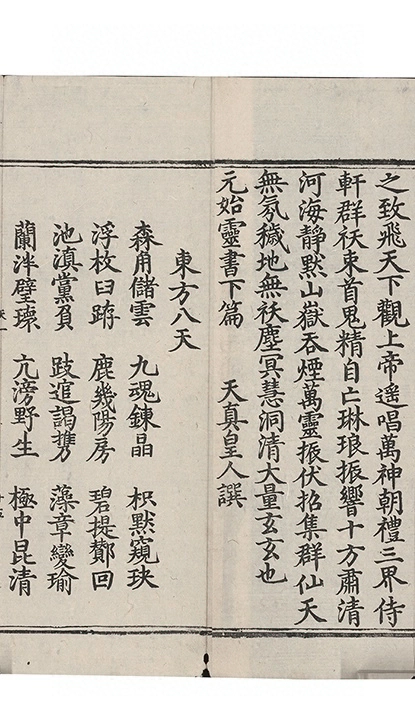 之致飛天下觀上帝遥唱萬神朝禮三界侍
軒群祅束首鬼精自亡琳琅振響十方肅清
河海靜默山嶽吞煙萬靈振伏招集群仙天
無氛穢地無祅塵冥慧洞清大量玄玄也
元始靈書下篇 天真皇人譔
東方八天
森甪儲雲 九魂鍊晶 枳默窺玦
浮枚臼跱 鹿幾陽房 碧提鄼回
池滇黨負 跂逭謁携 藻章變瑜
蘭泮璧瓌 亢滂野生 極中昆清